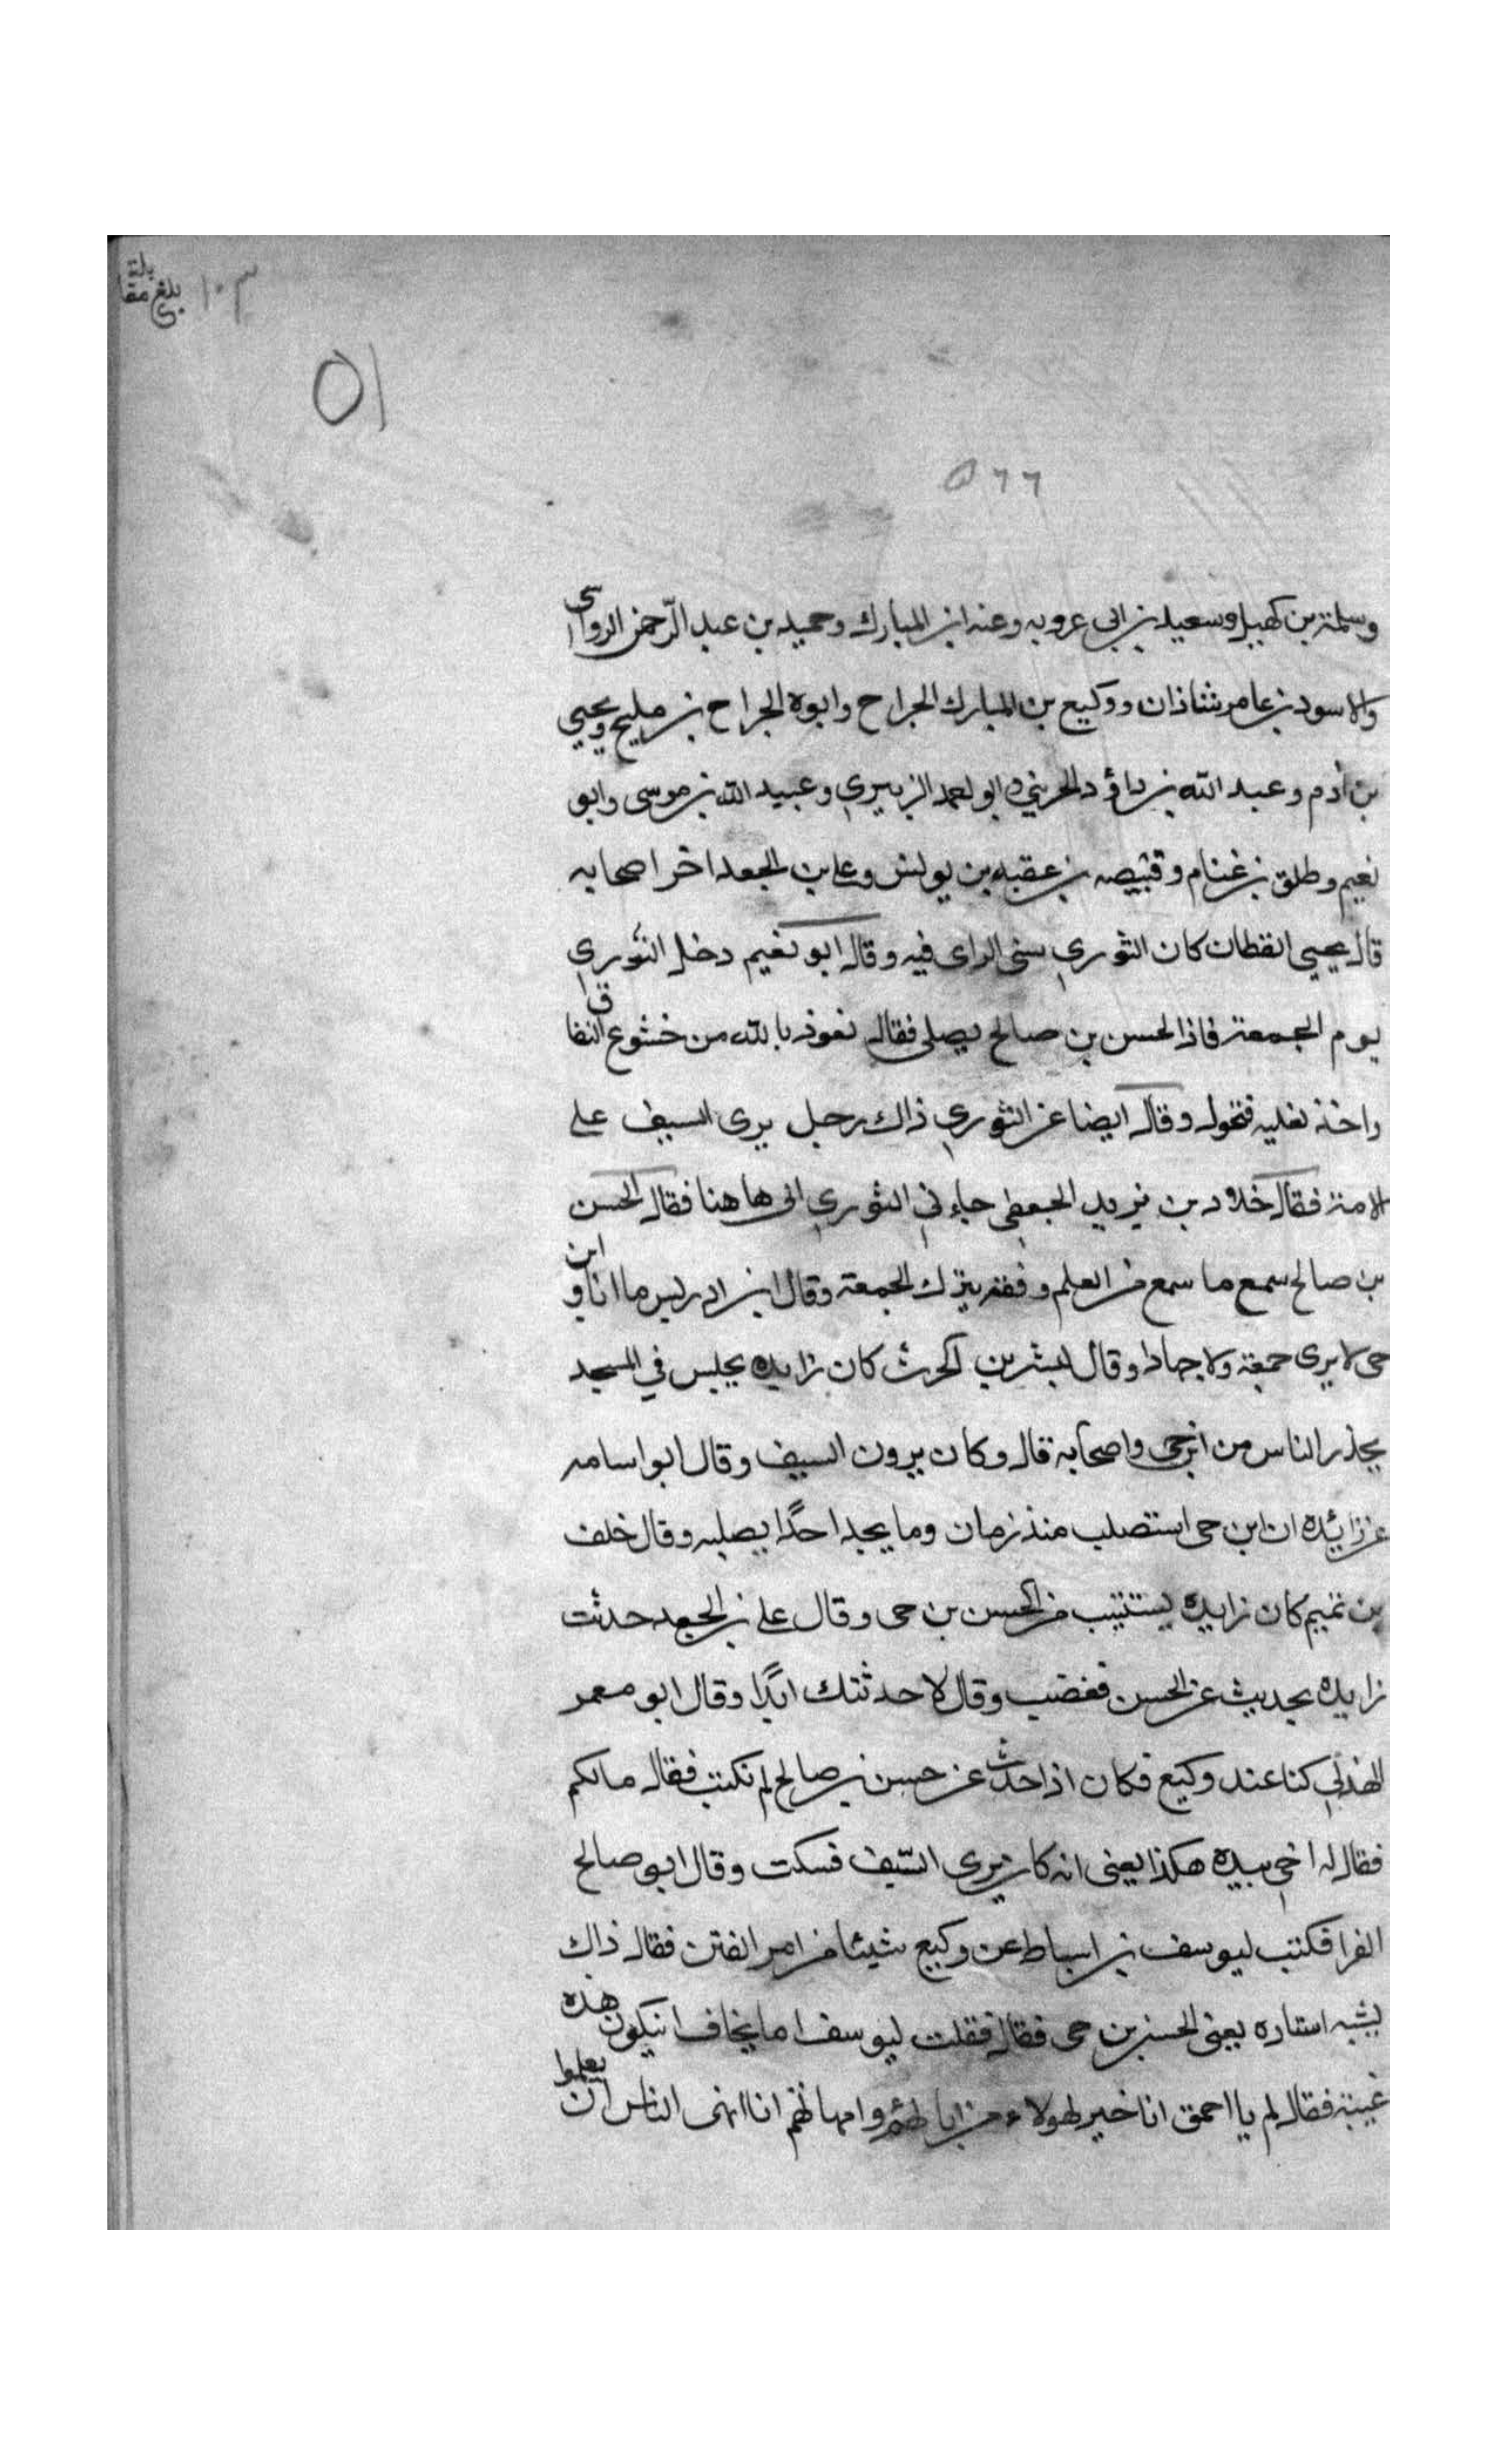 بلغ مقابلة
١٠٣
٥١
٥٦٦
وسلمة بن كهيل وسعيد بن ابي عروبه وعنه ابن المبارك وحميد بن عبد الرّحمن الرواسى
والاسود بن عامر شاذان ووكيع بن المبارك الجراح وابوه الجراح بن مليح ويحيي
بن أدم وعبد الله بن داؤد الخريبي وابو احمد الزبيري وعبيد الله بن موسى وابو
نعيم وطلق بن غنام وقبيصه بن عقبه بن يونس وعلى بن الجعد اخر اصحابه
قال يحيى القطان كان الثوري سئى الراى فيه وقال ابو نعيم دخل الثوري
يوم الجمعة فاذا الحسن بن صالح يصلى فقال نعوذ بالله من خشوع النفاق
واخذ نعليه فتحول وقال ايضا عن الثوري ذاك رجل يرى السيف على
الامة فقال خلاد بن يزيد الجعفى جاءني الثوري الى هاهنا فقال الحسن
بن صالح سمع ما سمع من العلم وفقه يترك الجمعة وقال ابن ادريس ما انا وابن
حى لا يرى جمعة ولا جهادا وقال بشر بن الحرث كان زايده يجلس في المسجد
يحذر الناس من ابن حى واصحابه قال وكان يرون السيف وقال ابو اسامه
عن زائده ان ابن حى استصلب منذ زمان وما يجد احدًا يصلبه وقال خلف
بن تميم كان زايده يستتيب من الحسن بن حى وقال على بن الجعد حدثت
زايده بحديث عن الحسن فغضب وقال لا حدثتك ابدًا وقال ابو معمر
الهذلي كنا عند وكيع فكان اذا حدث عن حسن بن صالح لم نكتب فقال مالكم
فقال له اخي بيده هكذا يعنى انه كان يرى السّيف فسكت وقال ابو صالح
الفرا فكتب ليوسف بن اسباط عن وكيع شيئا من امر الفتن فقال ذاك
يشبه استاده يعنى الحسن بن حى فقال فقلت ليوسف اما يخاف ان يكون هذه
غيبة فقال لم يا احمق انا خير لهولاء من ابائهم وامهاتهم انا انهى الناس ان يعلموا